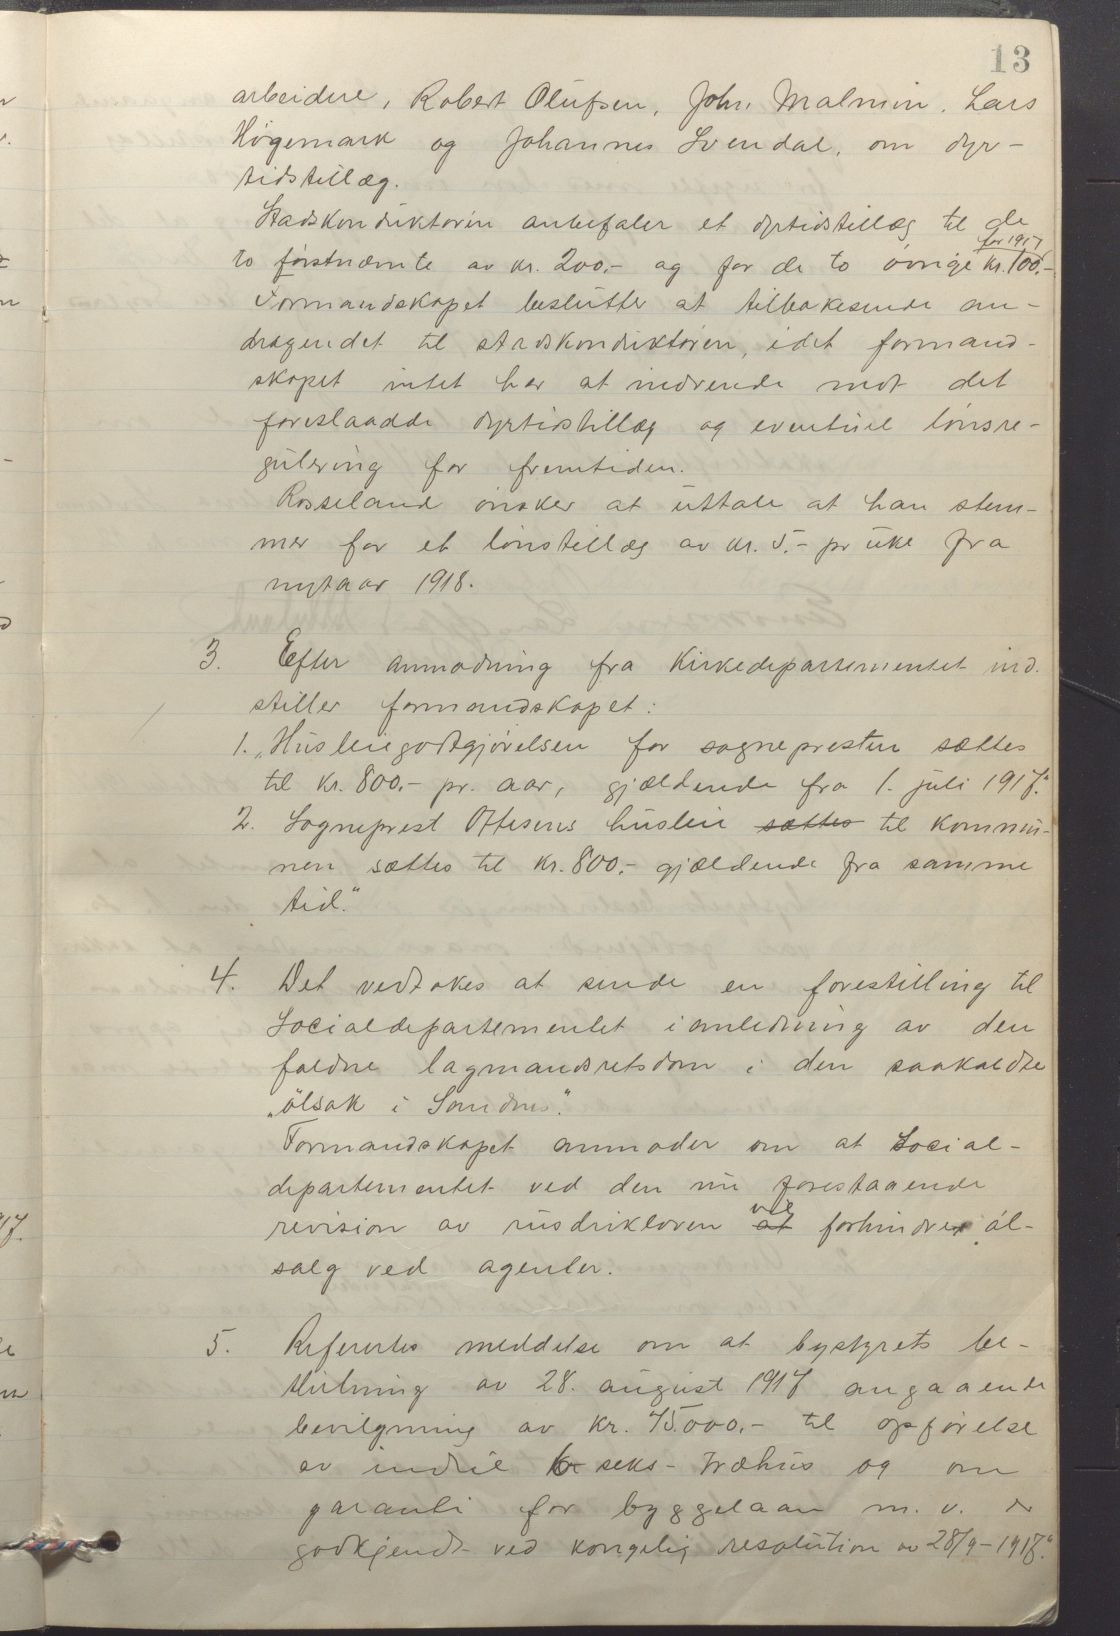 13
arbeidere, Robert Olufsen, John Malmin, Lars
Högemark og Johannes Svendal, om dyr-
tidstillæg.
Stadskonduktøren anbefaler et dyrtidstillæg til de
for 1917
to förstnæmte av kr. 200,- og for de to övrige kr. 100,-
Formandskapet beslutter at tilbakesende an-
dragendet til stadskonduktøren, idet formand-
skapet intet har at indvende mot det
foreslaadde dyrtidstillæg og eventuel lönsre-
gulering for fremtiden.
Rosseland önsker at uttale at han stem-
mer for et lönstillæg av kr. 5,- pr uke fra
nytaar 1918.
3. Efter anmodning fra Kirkedepartementet ind-
stiller formandskapet:
1. „Husleiegodtgjörelsen for sognepresten sættes
til kr. 800,- pr. aar, gjældende fra 1. juli 1917."
2. Sogneprest Ottesens husleie sættes til kommu-
nen sættes til kr. 800,- gjældende fra samme
tid."
4. Det vedtokes at sende en forestilling til
Socialdepartementet i anledning av den
faldne lagmandsretsdom i den saakaldte
„ölsak i Sandnes".
Formandskapet anmoder om at Social-
departementet ved den nu forestaaende
vil
revision av rusdrikloven at forhindre öl-
salg ved agenter.
5. Refertes meddelse om at bystyrets be-
slutning av 28. august 1917 angaaende
bevilgning av kr. 75000,- til opförelse
av indtil seks - træhus og om
garanti for byggelaan m. v. er
godkjendt ved kongelig resolution av 28/9-1917."